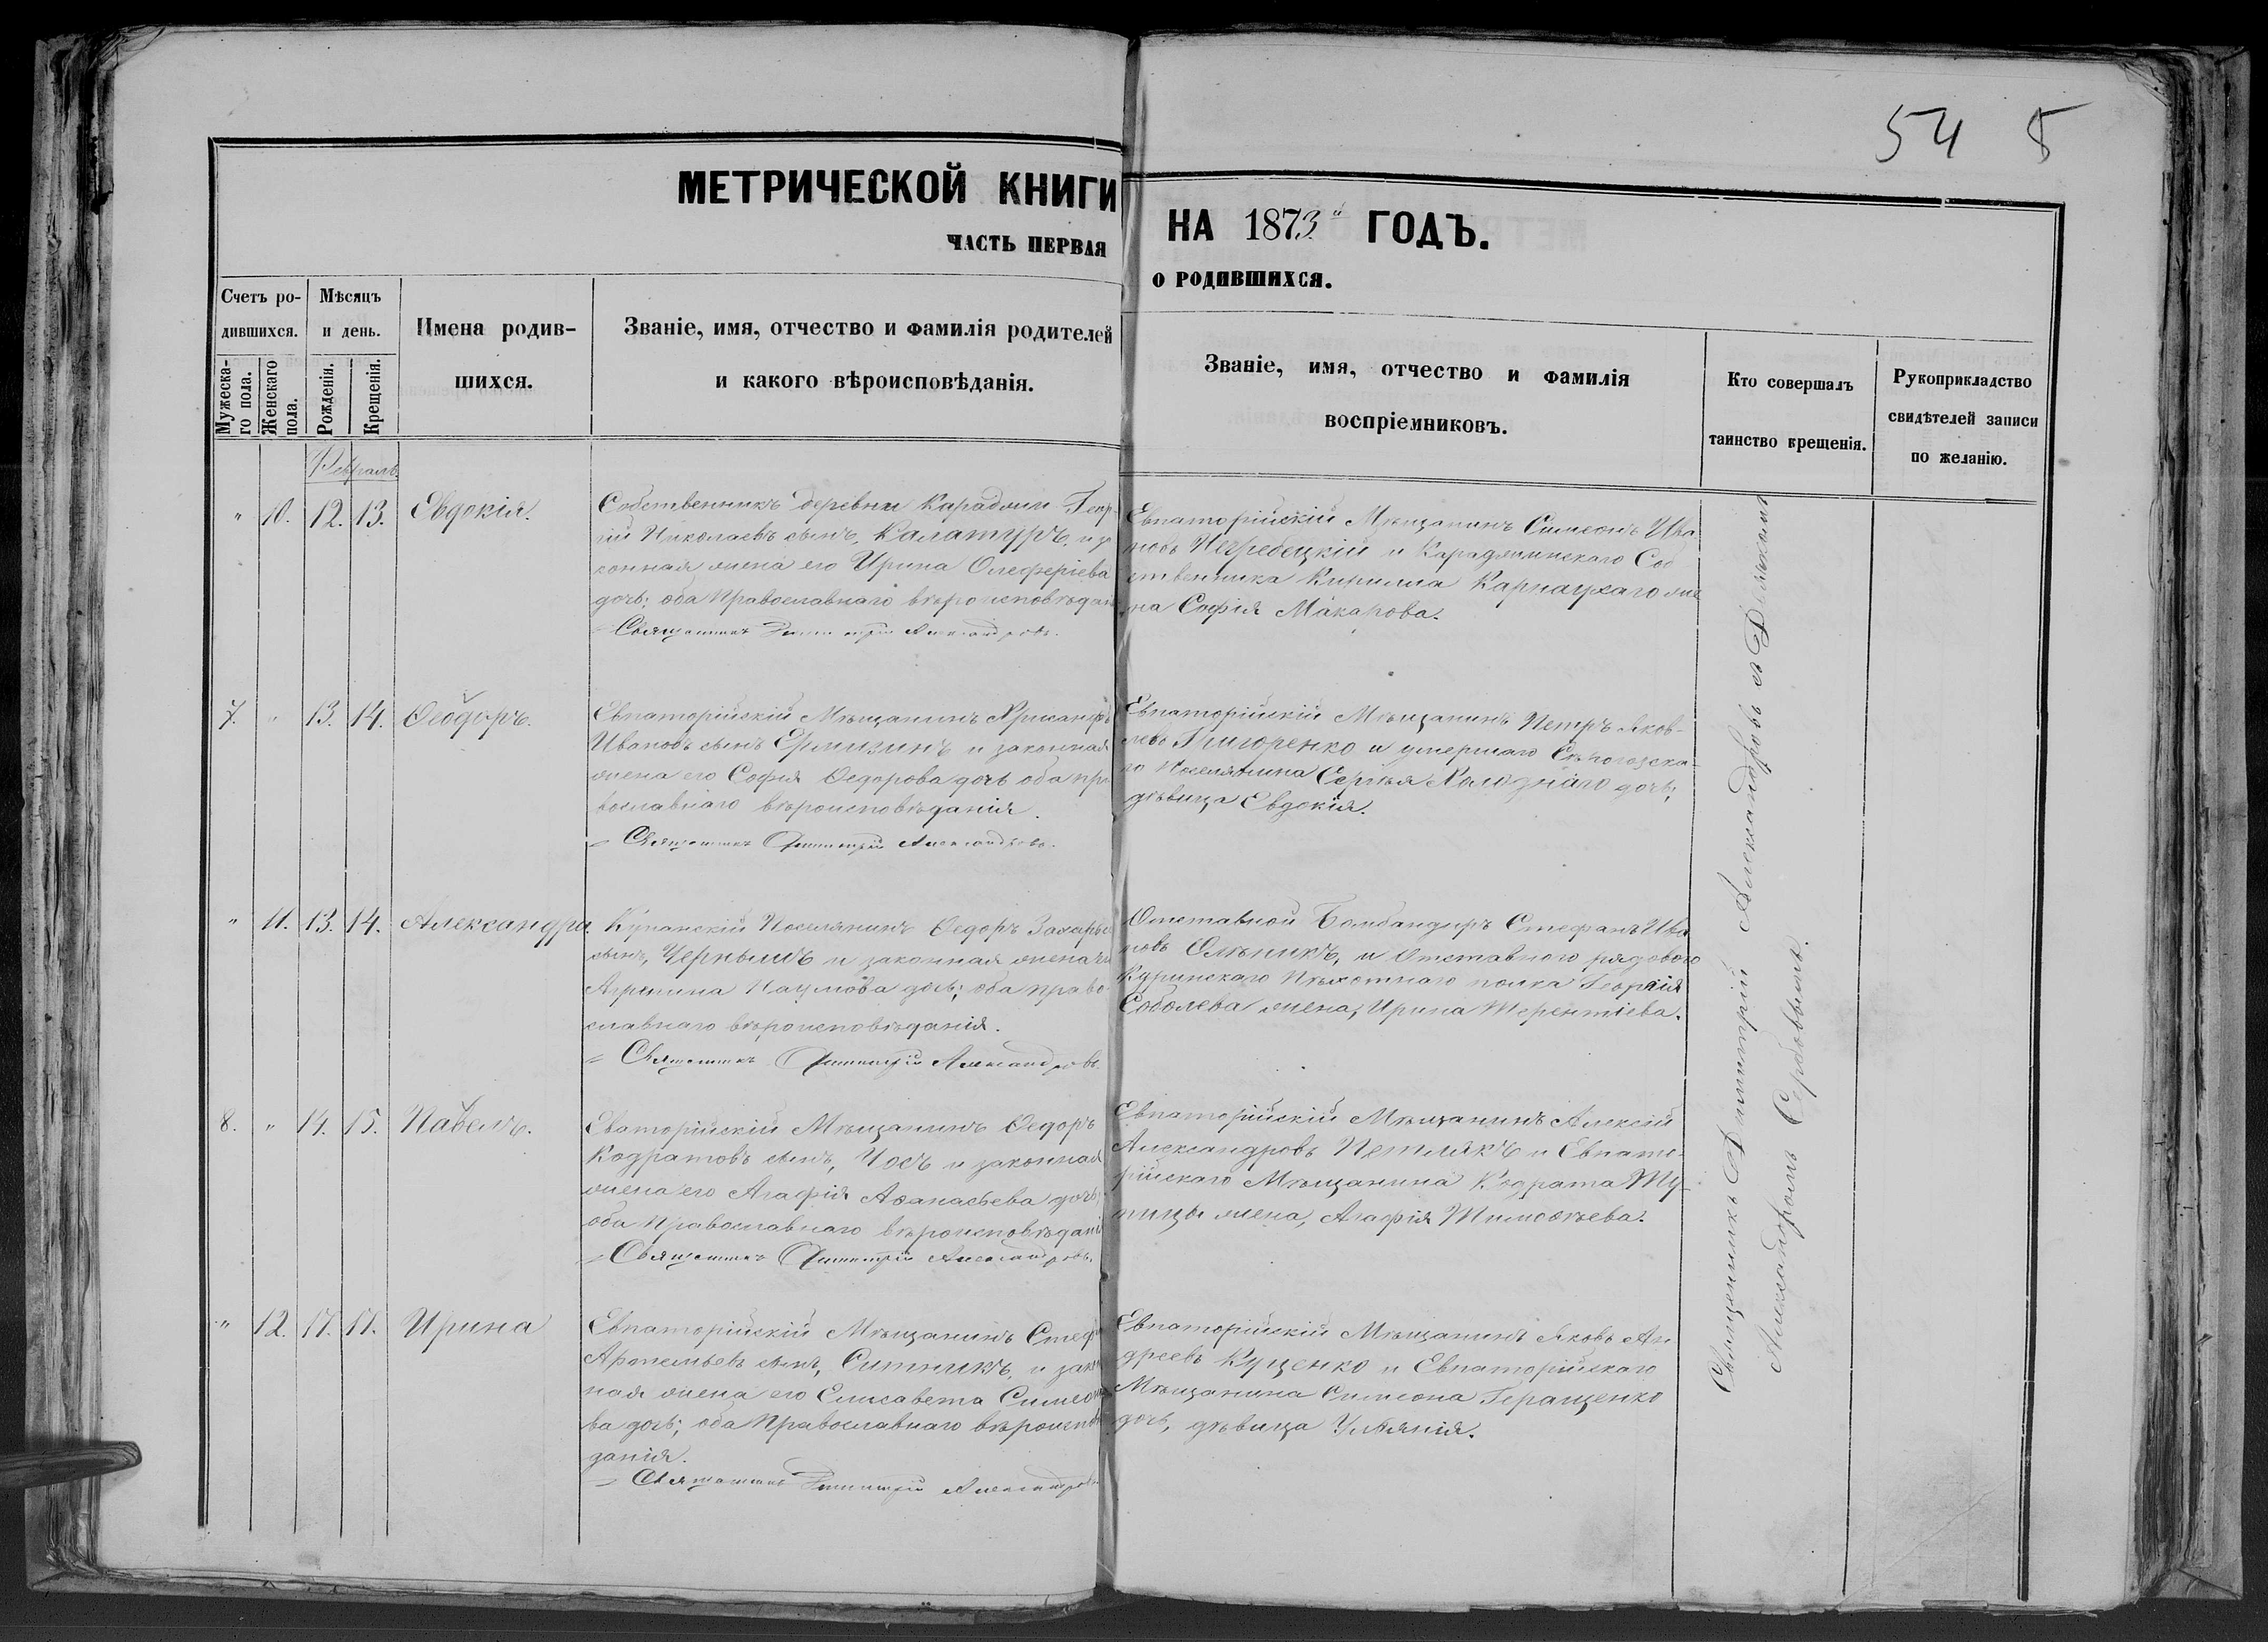 54 5
МЕТРИЧЕСКОЙ КНИГИ НА 1873й ГОДЪ.
ЧАСТЬ ПЕРВАЯ О РОДИВШИХСЯ.
Счетъ родившихся.
Мужескаго пола.
Женскаго пола.
Мѣсяцъ и день.
Рожденія.
Крещенія.
Имена родив-
шихся.
Званіе, имя, отчество и фамилія родителей
и какого вѣроисповѣданія.
Званіе, имя, отчество и фамилія
воспріемниковъ.
Кто совершалъ
таинство крещенія.
Рукоприкладство
свидѣтелей записи
по желанію.
Февраль
" 10. 12. 13. Евдокія.
Собственникъ деревни Караджи Геор-
гій Николаевъ сынъ, Калатуръ, и за
конная жена его Ирина Олеферіева
дочь; оба Православнаго вѣроисповѣдан
Священникъ Димитрій Александровъ.
Евпаторійскій Мѣщанинъ Симеонъ Ива
новъ Негребецкій и Караджинскаго Соб
ственника Кирилла Карнаухаго же
на Софія Макарова.
7. " 13. 14. Ѳеодоръ.
Евпаторійскій Мѣщанинъ Хрисанфъ
Ивановъ сынъ и законная
жена его Софія Ѳедорова дочь оба пра
вославнаго вѣроисповѣданія.
Священникъ Димитрій Александровъ.
Евпаторійскій Мѣщанинъ Петръ Яков-
левъ Григоренко и умершаго
го Поселянина Сергѣя Холоднаго дочь,
дѣвица Евдокія.
" 11. 13. 14. Александра.
Купанскій Поселянинъ Ѳедоръ Захарьев
сынъ, Чернышъ и законная жена его
Агрипина Наумова дочь; оба право-
славнаго вѣроисповѣданія.
Священникъ Димитрій Александровъ.
Отставной Бомбандиръ Стефанъ Ива
новъ Олѣникъ, и Отставного рядового
Куринскаго Пѣхотнаго полка Георгія
Соболева жена, Ирина Терентіева.
8. " 14. 15. Павелъ.
Еваторійскій Мѣщанинъ Ѳедоръ
Кодратовъ сынъ, Чосъ и законная
жена его Агафія Аѳанасьева дочь;
оба Православнаго вѣроисповѣдані
Священникъ Димитрій Александровъ.
Евпаторійскій Мѣщанинъ Алексій
Александровъ Петлякъ и Евпато-
рійскаго Мѣщанина Кодрата Ту-
пицы жена, Агафія Тимоѳѣева.
" 12. 17. 17. Ирина
Евпаторійскій Мѣщанинъ Стеф
сынъ, Ситникъ, и закон
ная жена его Елисавета Симеоно
ва дочь; оба Православнаго вѣроиспов
данія.
Священникъ Димитрій Александровъ
Евпаторійскій Мѣщанинъ Яковъ Ан
дреевъ Куценко и Евпаторійскаго
Мѣщанина Симеона Геращенко
дочь, дѣвица Уліянія.
Священникъ Димитрій Александровъ съ Дьякономъ
Александромъ Сербовымъ.